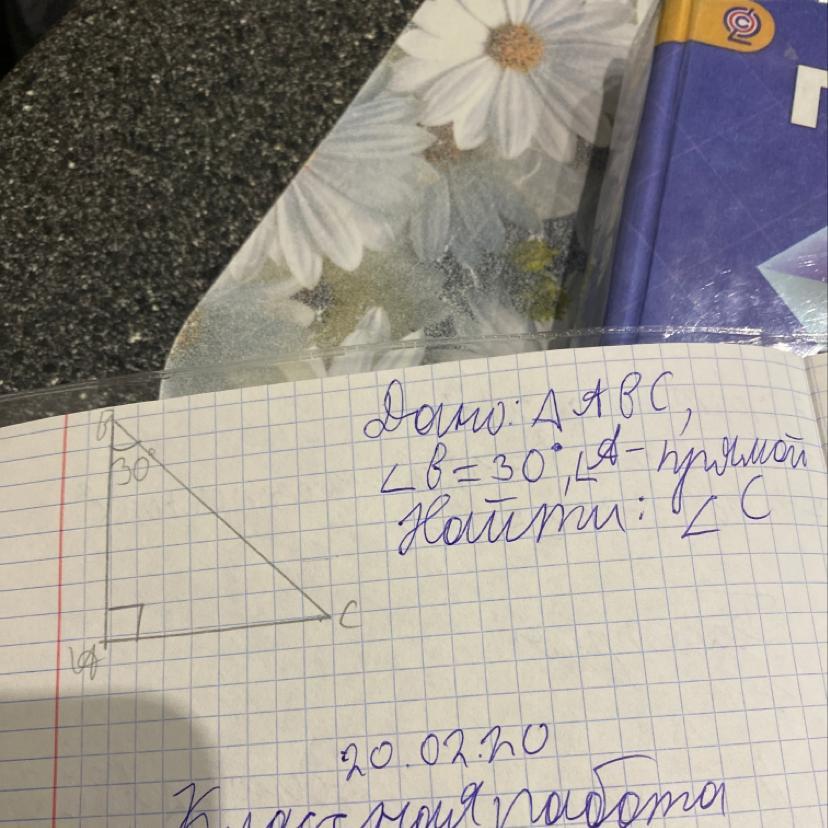 Г
В
30°
Дано: Δ ABC,
∠B = 30°, ∠A - прямой
Найти: ∠C
C
A
20.02.20
Классная работа